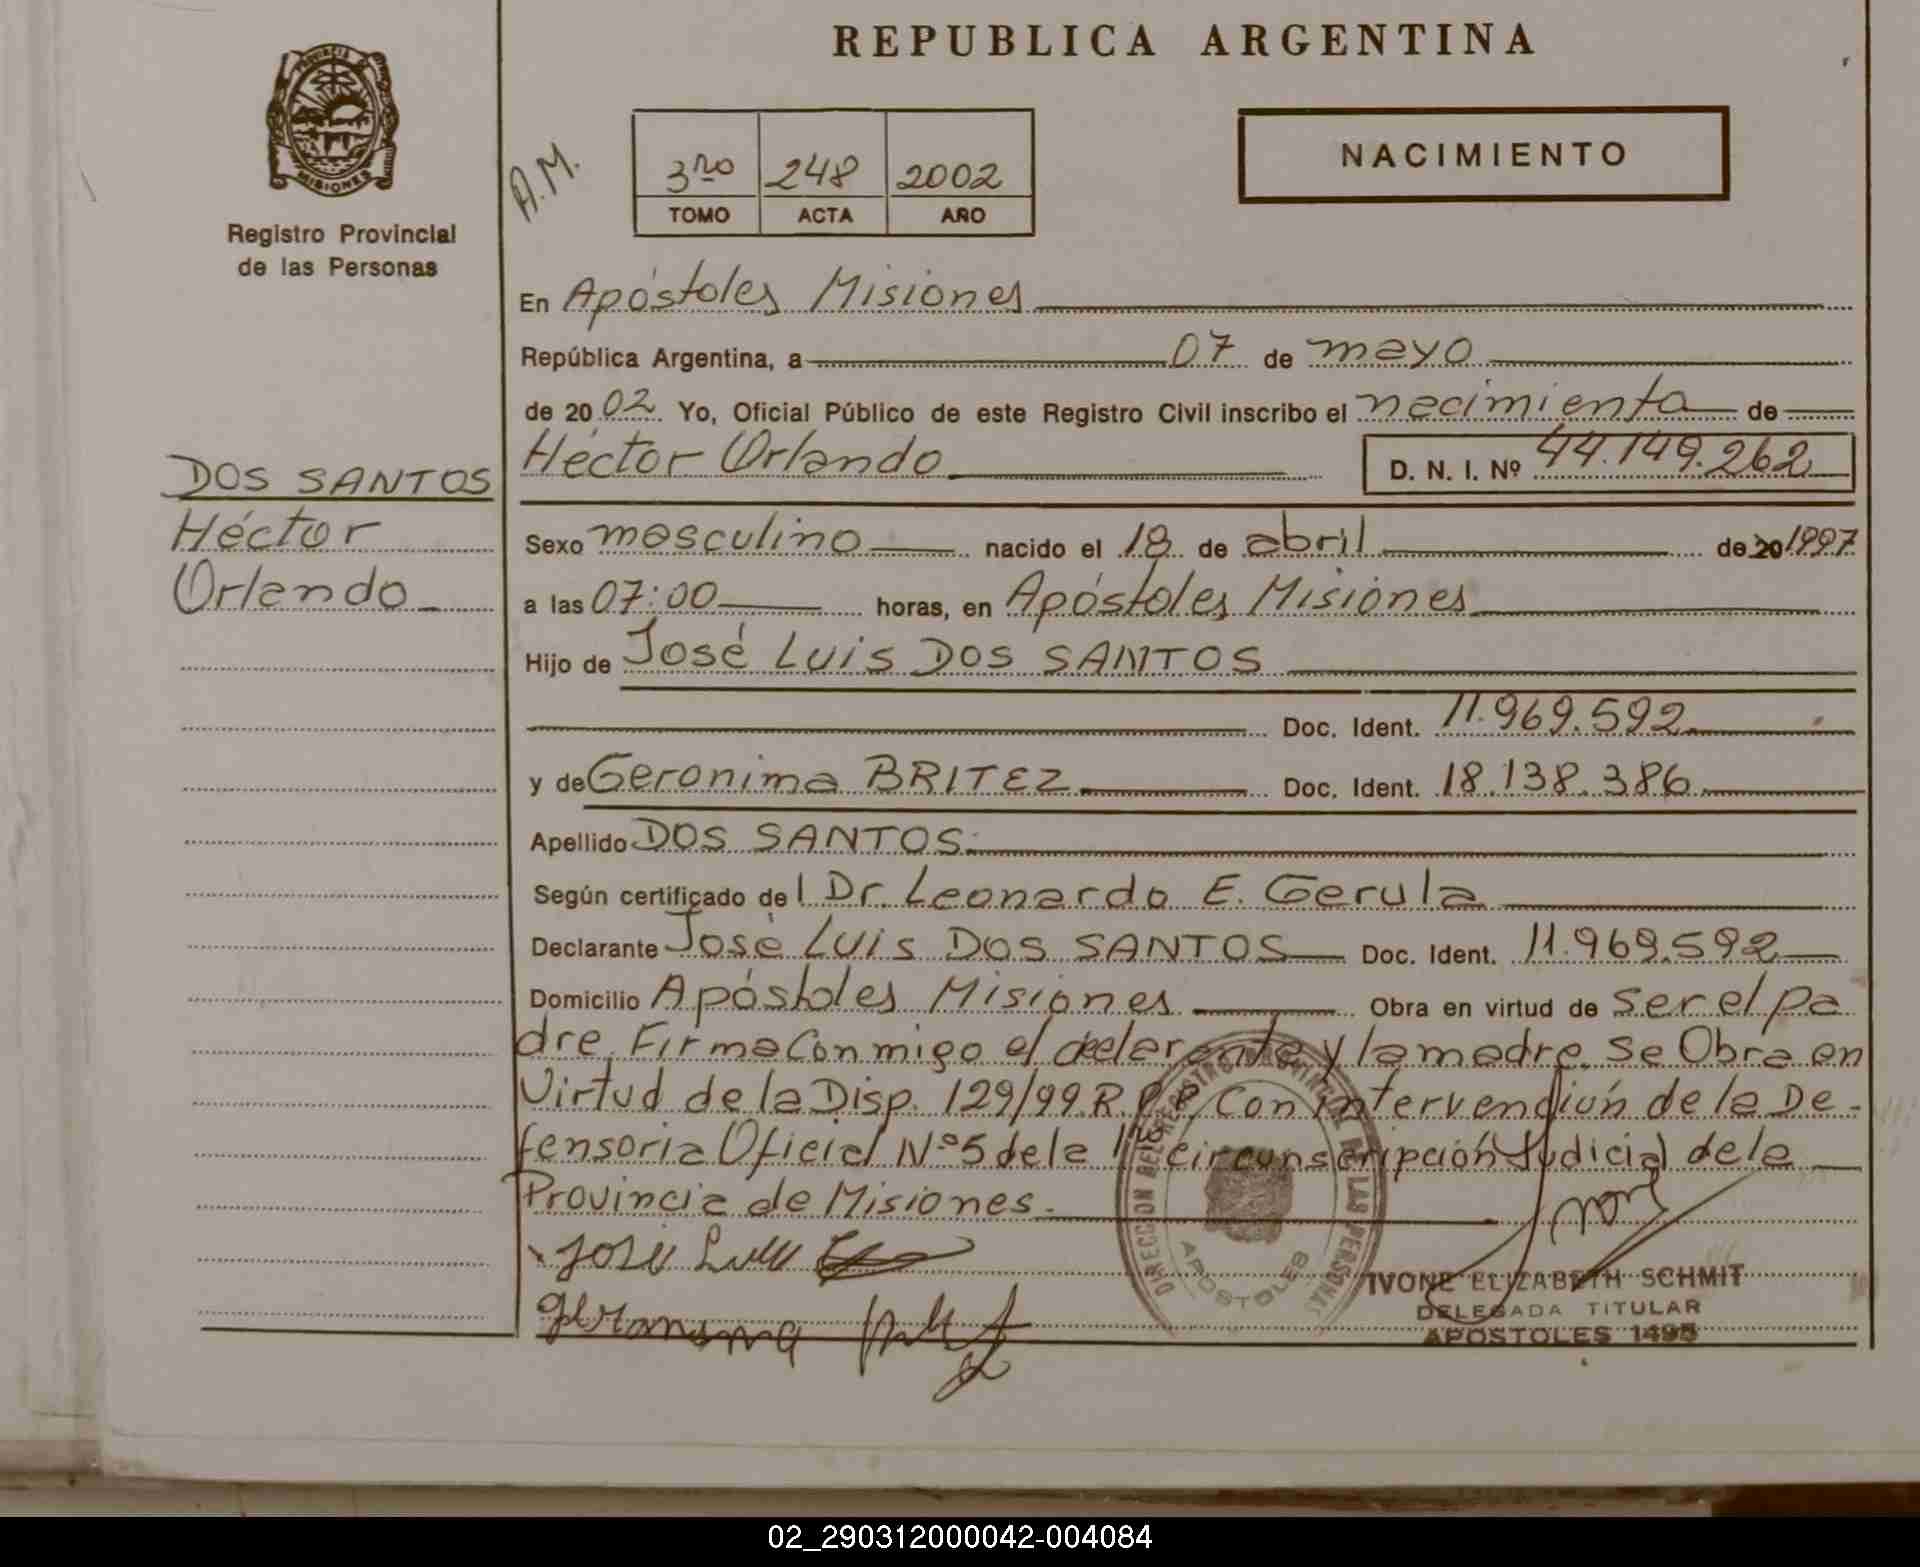 REPUBLICA ARGENTINA
PROVINCIA DE
MISIONES
Registro Provincial
de las Personas
A.M.
3ro 248 2002
TOMO ACTA AÑO
NACIMIENTO
En Apóstoles Misiones
República Argentina, a 07 de mayo
de 2002. Yo, Oficial Público de este Registro Civil inscribo el nacimiento de
Héctor Orlando D. N. I. Nº 44.149.262
DOS SANTOS
Héctor
Orlando
Sexo masculino nacido el 18 de abril de 20 1997
a las 07:00 horas, en Apóstoles Misiones
Hijo de José Luis DOS SANTOS
Doc. Ident. 11.969.592
y de Geronima BRITEZ Doc. Ident. 18.138.386
Apellido DOS SANTOS.
Según certificado del Dr. Leonardo E. Gerula
Declarante José Luis DOS SANTOS Doc. Ident. 11.969.592
Domicilio Apóstoles Misiones Obra en virtud de ser el pa
dre. Firma Conmigo el declarante y la madre. Se Obra en
Virtud de la Disp. 129/99 R.P.P. Con intervención de la De-
fensoria Oficial Nº 5 de la 1ra circunscripción Judicial de la
Provincia de Misiones.
DIRECCION DEL REGISTRO PROVINCIAL DE LAS PERSONAS
APOSTOLES
José Luis
IVONE ELIZABETH SCHMIT
DELEGADA TITULAR
APOSTOLES 1495
Geronima
02_290312000042-004084